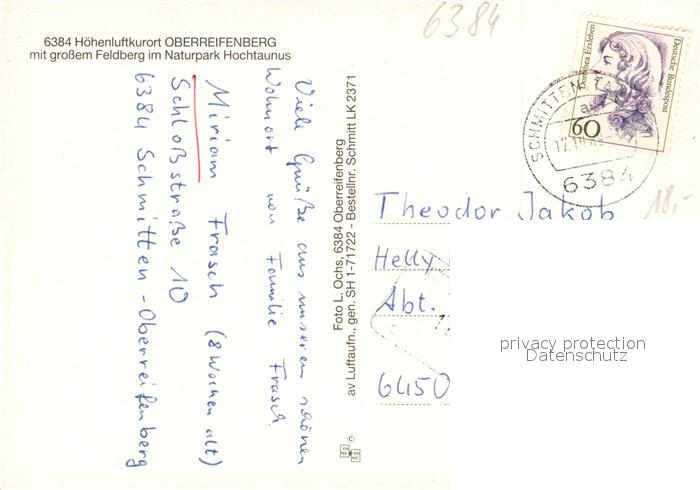 6384
6384 Höhenluftkurort OBERREIFENBERG
mit großem Feldberg im Naturpark Hochtaunus
Viele Grüße aus unserem schönen
Wohnort von Familie Frasch
Miriam Frasch (8 Wochen alt)
Schloßstraße 10
6384 Schmitten-Oberreifenberg
Foto L. Ochs, 6384 Oberreifenberg
av Luftaufn., gen. SH 1-71722 - Bestellnr. Schmitt LK 2371
©
Dorothea Erxleben
Deutsche Bundespost
60
SCHMITTEN
6384
18,-
Theodor Jakob
Helly
Abt.
6450
privacy protection
Datenschutz